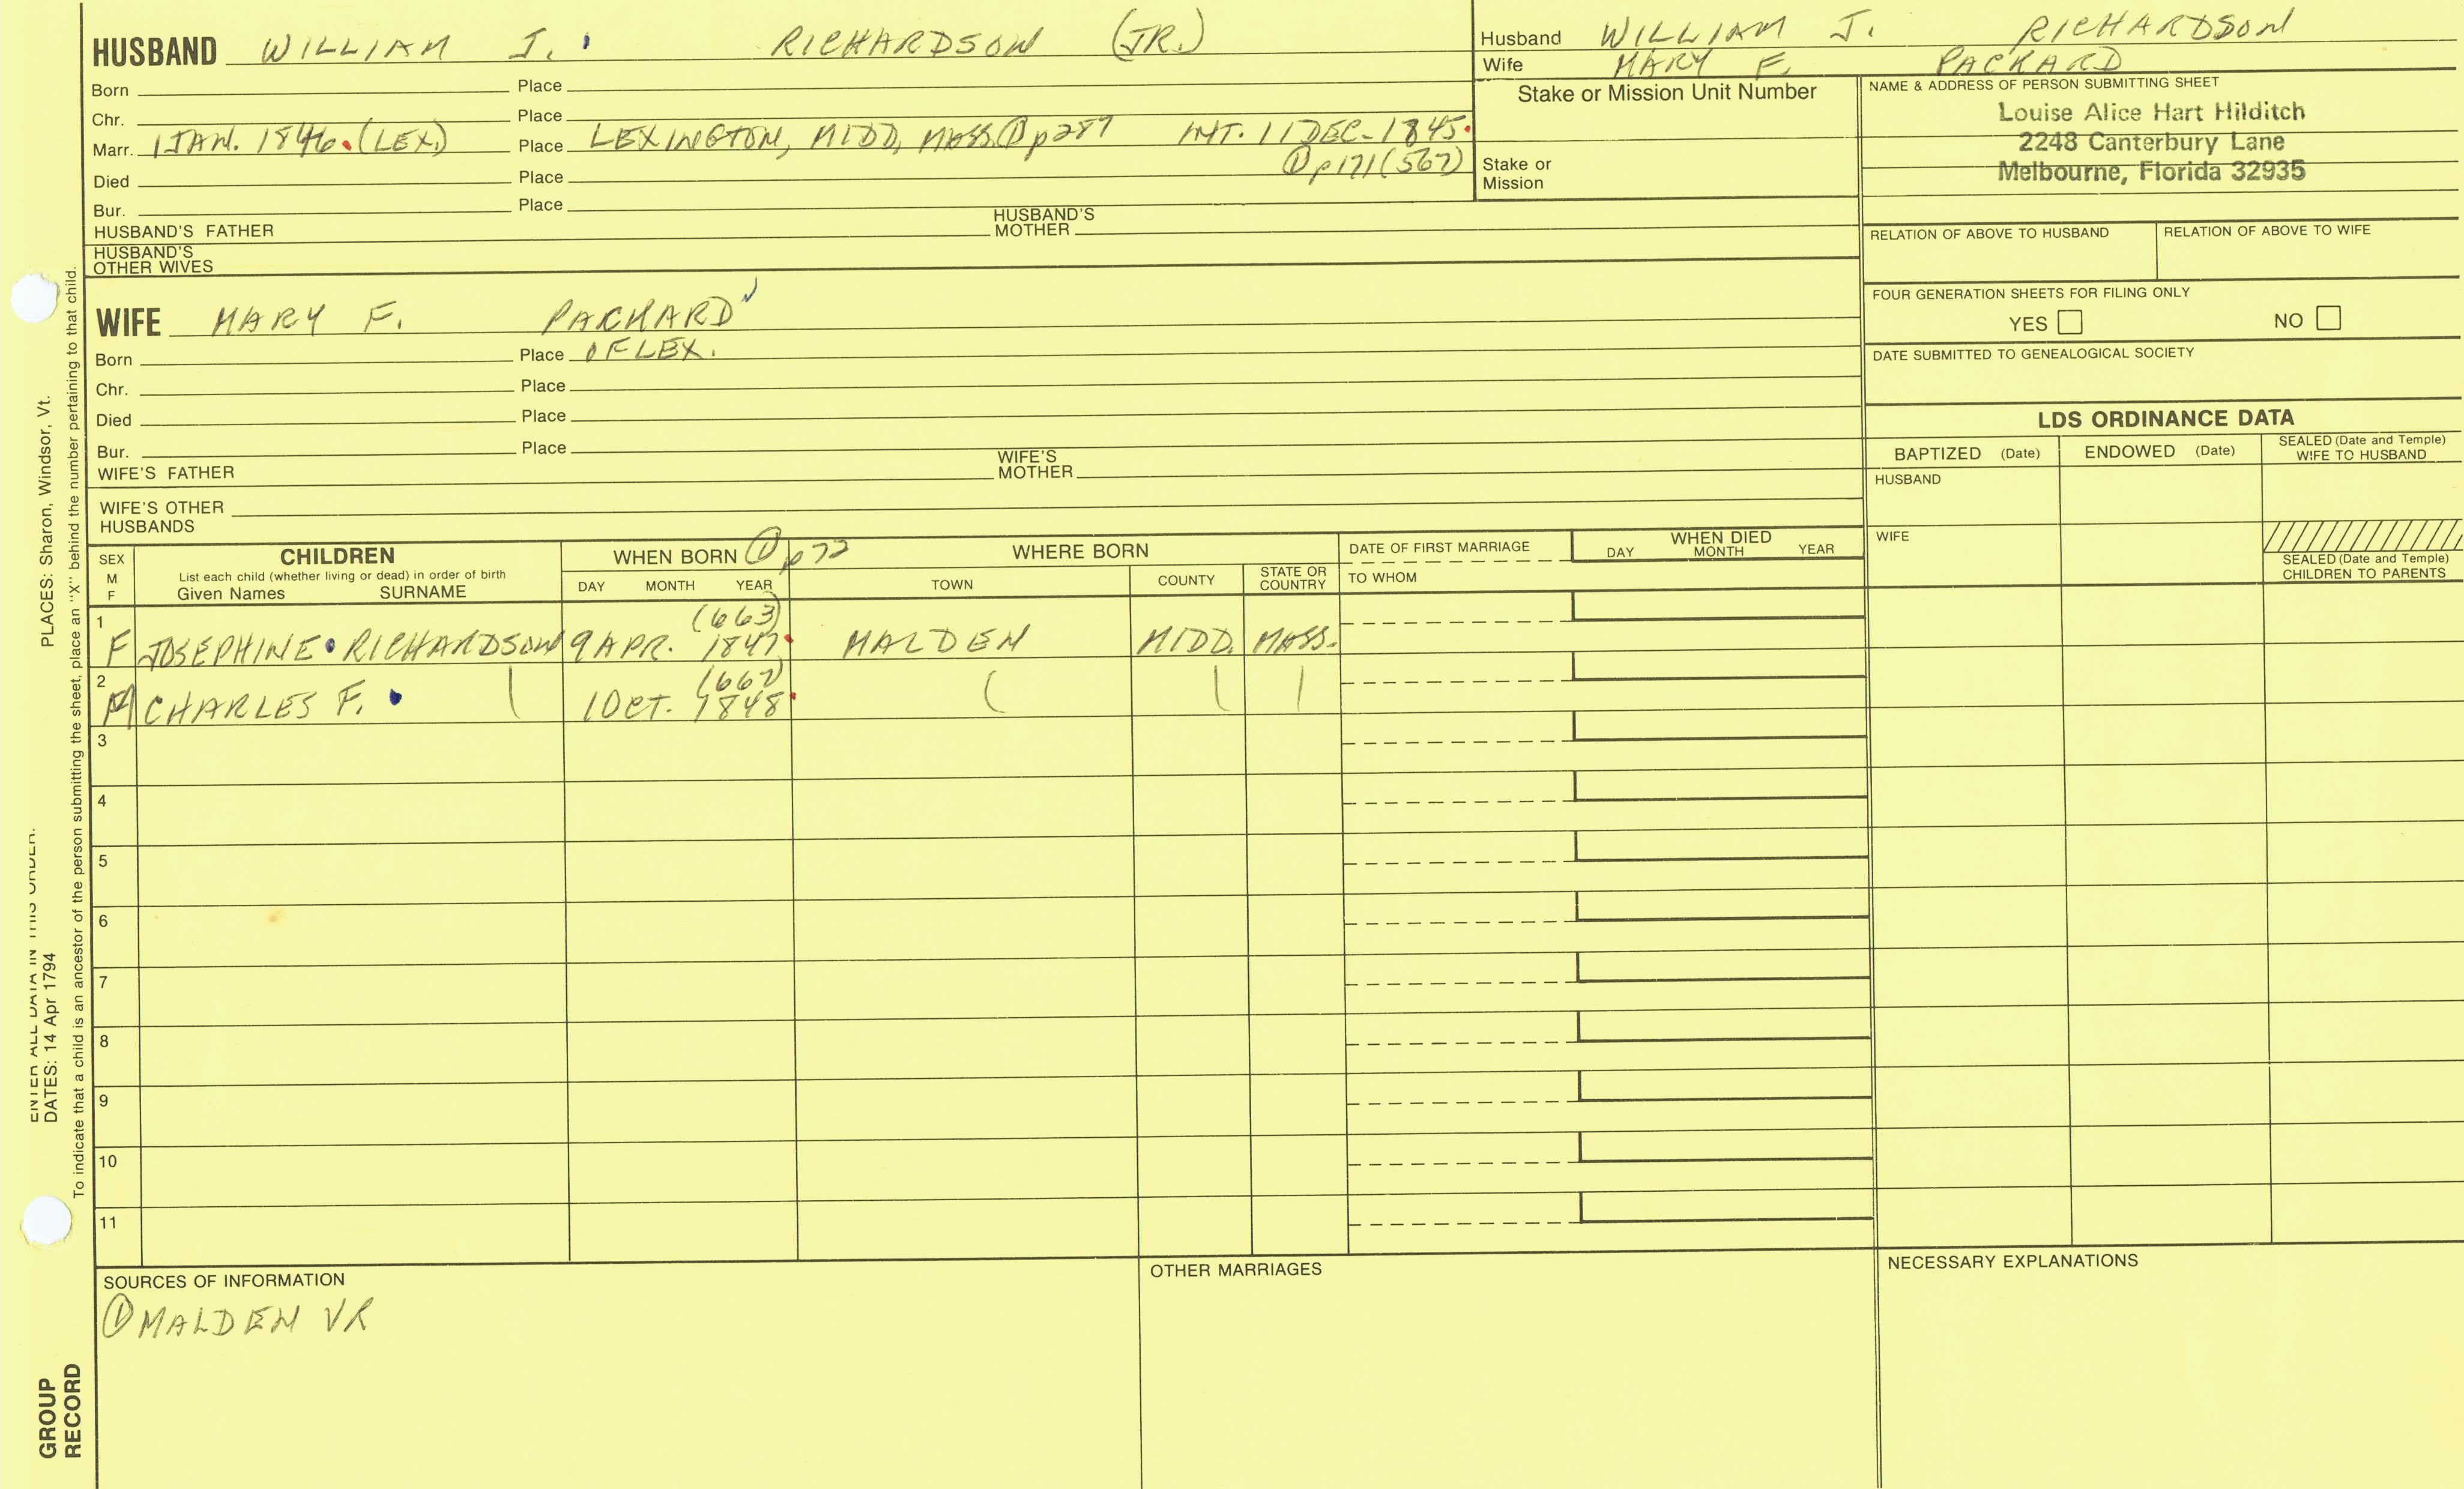 HUSBAND WILLIAM J. RICHARDSON (JR.)
Born Place
Chr. Place
Marr. 1 JAN. 1846. (LEX.) Place LEXINGTON, MIDD, MASS. ① p287 INT. 11 DEC. 1845.
① p171 (567)
Died Place
Bur. Place
HUSBAND'S FATHER HUSBAND'S MOTHER
HUSBAND'S OTHER WIVES
Husband WILLIAM J. RICHARDSON
Wife MARY F. PACKARD
Stake or Mission Unit Number
Stake or
Mission
NAME & ADDRESS OF PERSON SUBMITTING SHEET
Louise Alice Hart Hilditch
2248 Canterbury Lane
Melbourne, Florida 32935
RELATION OF ABOVE TO HUSBAND RELATION OF ABOVE TO WIFE
FOUR GENERATION SHEETS FOR FILING ONLY
YES NO
DATE SUBMITTED TO GENEALOGICAL SOCIETY
WIFE MARY F. PACKARD
Born Place OF LEX.
Chr. Place
Died Place
Bur. Place
WIFE'S FATHER WIFE'S MOTHER
WIFE'S OTHER
HUSBANDS
LDS ORDINANCE DATA
BAPTIZED (Date) ENDOWED (Date) SEALED (Date and Temple) WIFE TO HUSBAND
HUSBAND
WIFE
SEALED (Date and Temple)
CHILDREN TO PARENTS
SEX
M
F
CHILDREN
List each child (whether living or dead) in order of birth
Given Names SURNAME
WHEN BORN ① p72
DAY MONTH YEAR
WHERE BORN
TOWN COUNTY STATE OR COUNTRY
DATE OF FIRST MARRIAGE
TO WHOM
WHEN DIED
DAY MONTH YEAR
1 (663)
F JOSEPHINE RICHARDSON 9 APR. 1847 MALDEN MIDD. MASS.
2 (667)
CHARLES F. 1 OCT. 1848
3
4
5
6
7
8
9
10
11
SOURCES OF INFORMATION
① MALDEN VR
OTHER MARRIAGES
NECESSARY EXPLANATIONS
ENTER ALL DATA IN THIS ORDER:
DATES: 14 Apr 1794 PLACES: Sharon, Windsor, Vt.
To indicate that a child is an ancestor of the person submitting the sheet, place an "X" behind the number pertaining to that child.
GROUP
RECORD